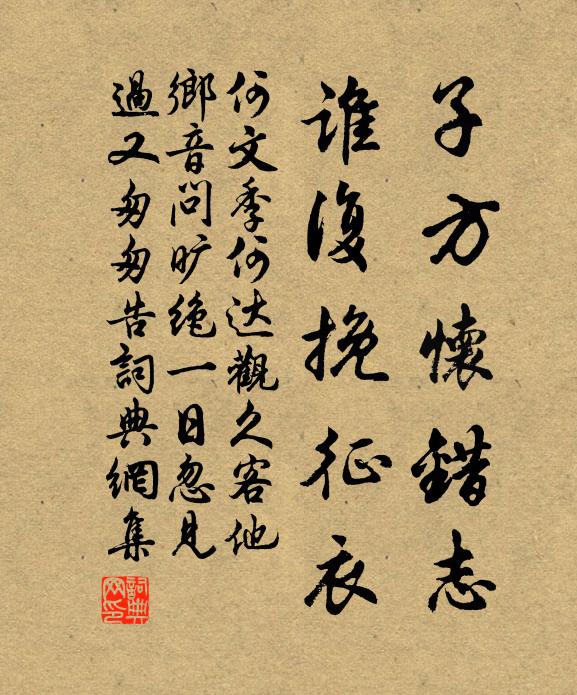 子方懷錯志
誰復挽征衣
何文季何达觀久客他
鄉音問旷絶一日忽見
過又匆匆告詞典網集
詞典网印